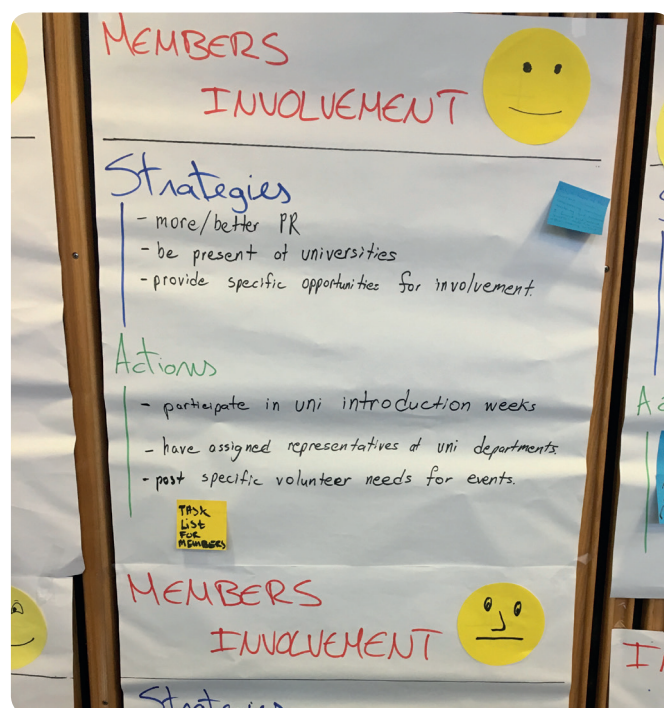 MEMBERS
INVOLVEMENT
Strategies
- more/better PR
- be present at universities
- provide specific opportunities for involvement.
Actions
- participate in uni introduction weeks
- have assigned representatives at uni departments
- post specific volunteer needs for events.
TASK
LIST
FOR
MEMBERS
MEMBERS
INVOLVEMENT
Strategies